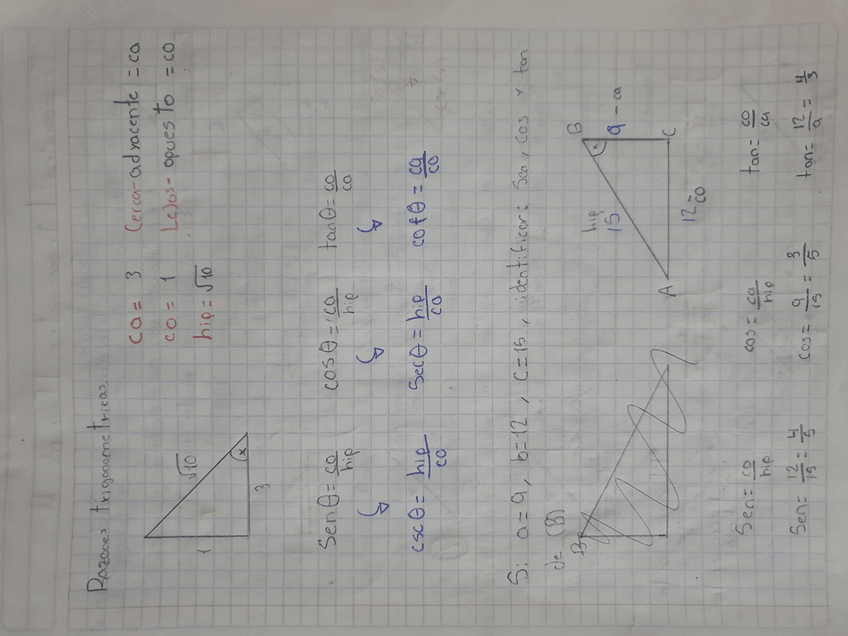 Razones trigonometricas.
ca = 3 Cerca-adyacente = ca
co = 1 Lejos-opuesto = co
hip = √10
√10
1
x
3
Senθ = co/hip cosθ = ca/hip tanθ = co/ca
cscθ = hip/co Secθ = hip/ca cotθ = ca/co
Si a=9, b=12, c=15, identificar: Sen, cos y tan
de (B)
B
B
hip
15
9 - ca
A
C
12
co
Sen = co/hip cos = ca/hip tan = co/ca
Sen = 12/15 = 4/5 cos = 9/15 = 3/5 tan = 12/9 = 4/3